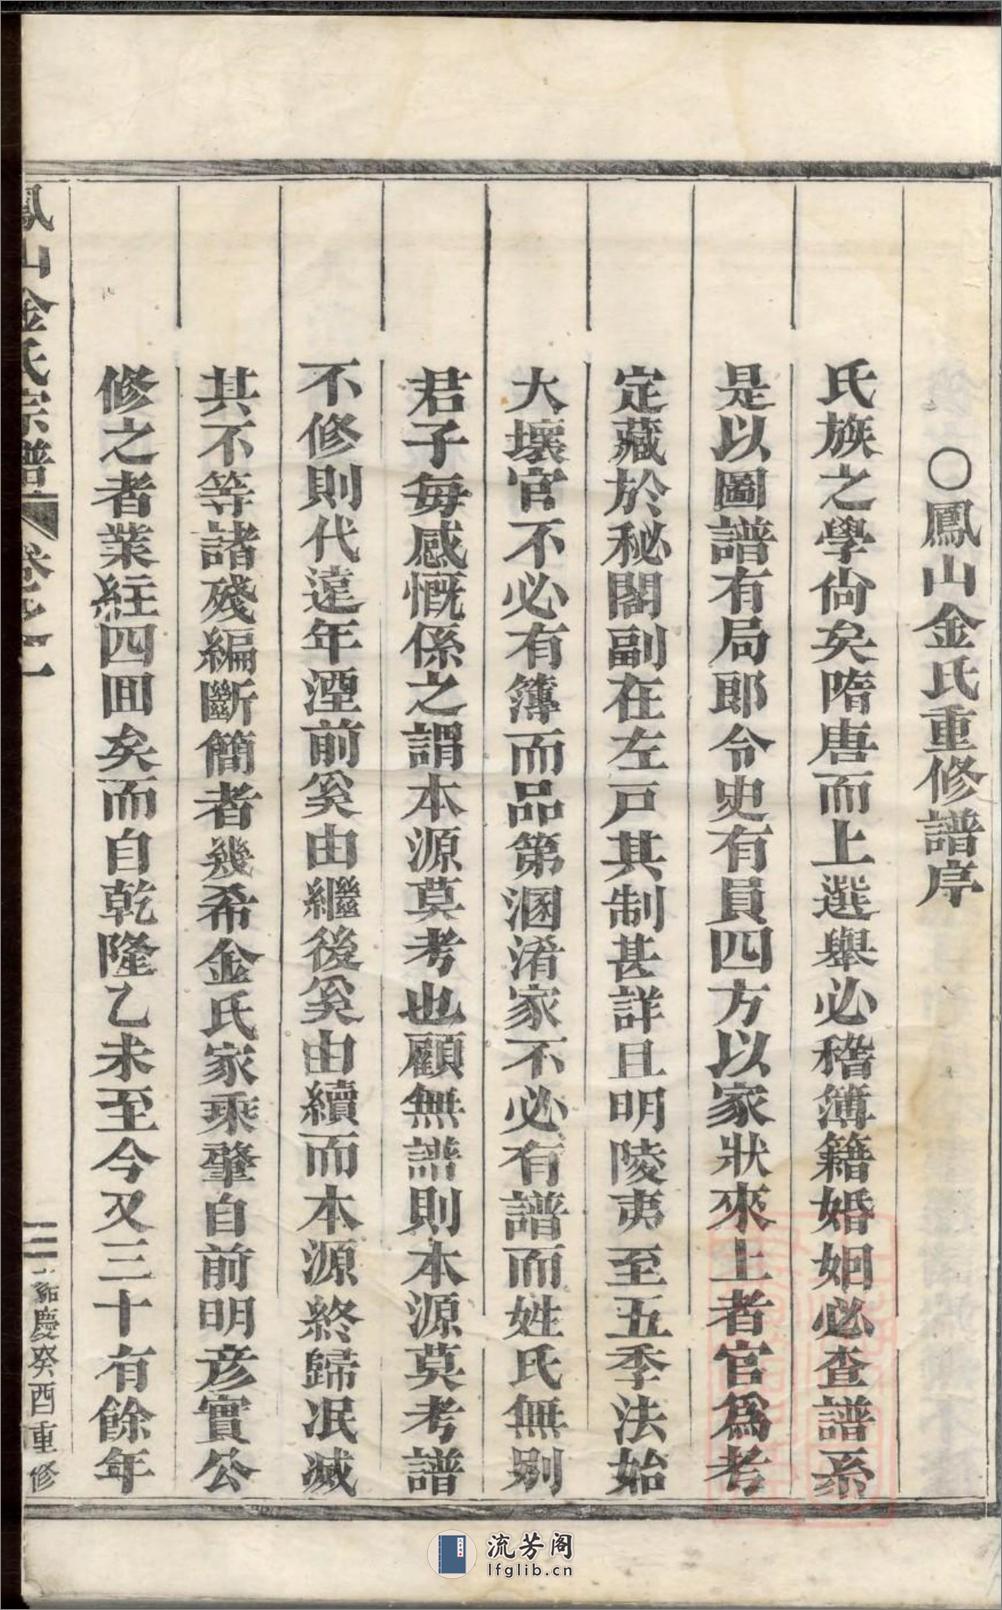 〇鳳山金氏重修譜序
氏族之學尙矣隋唐而上選舉必稽簿籍婚姻必查譜系
是以圖譜有局郎令史有員四方以家狀來上者官爲考
定藏於秘閣副在左戸其制甚詳且明陵夷至五季法始
大壞官不必有簿而品第溷淆家不必有譜而姓氏無别
君子每感慨係之謂本源莫考也顧無譜則本源莫考譜
不修則代遠年湮前奚由繼後奚由續而本源終歸冺滅
其不等諸殘編斷簡者幾希金氏家乘肇自前明彦實公
修之者業經四回矣而自乾隆乙未至今又三十有餘年
鳳山金氏宗譜
卷之一
二
嘉慶癸酉重修
流芳阁
lfglib.cn